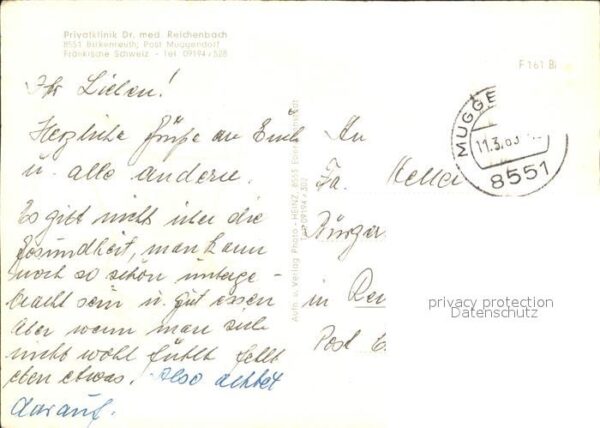 Privatklinik Dr. med. Reichenbach
8551 Birkenreuth, Post Muggendorf
Fränkische Schweiz - Tel. 09194 / 328
F 161 Bi
MUGGE
11.3.
8551
Ihr Lieben!
Herzliche Grüße an Euch
u. alle anderen.
Es gibt nichts über die
Gesundheit, man kann
noch so schön unterge-
bracht sein u. gut essen
aber wenn man sich
nicht wohl fühlt fehlt
eben etwas. also achtet
darauf.
Aufn. u. Verlag Photo-HEINZ, 8553 Ebermannstadt
Tel. 09194 / 302
An
Fa.
Bürger
in
Post E.
privacy protection
Datenschutz